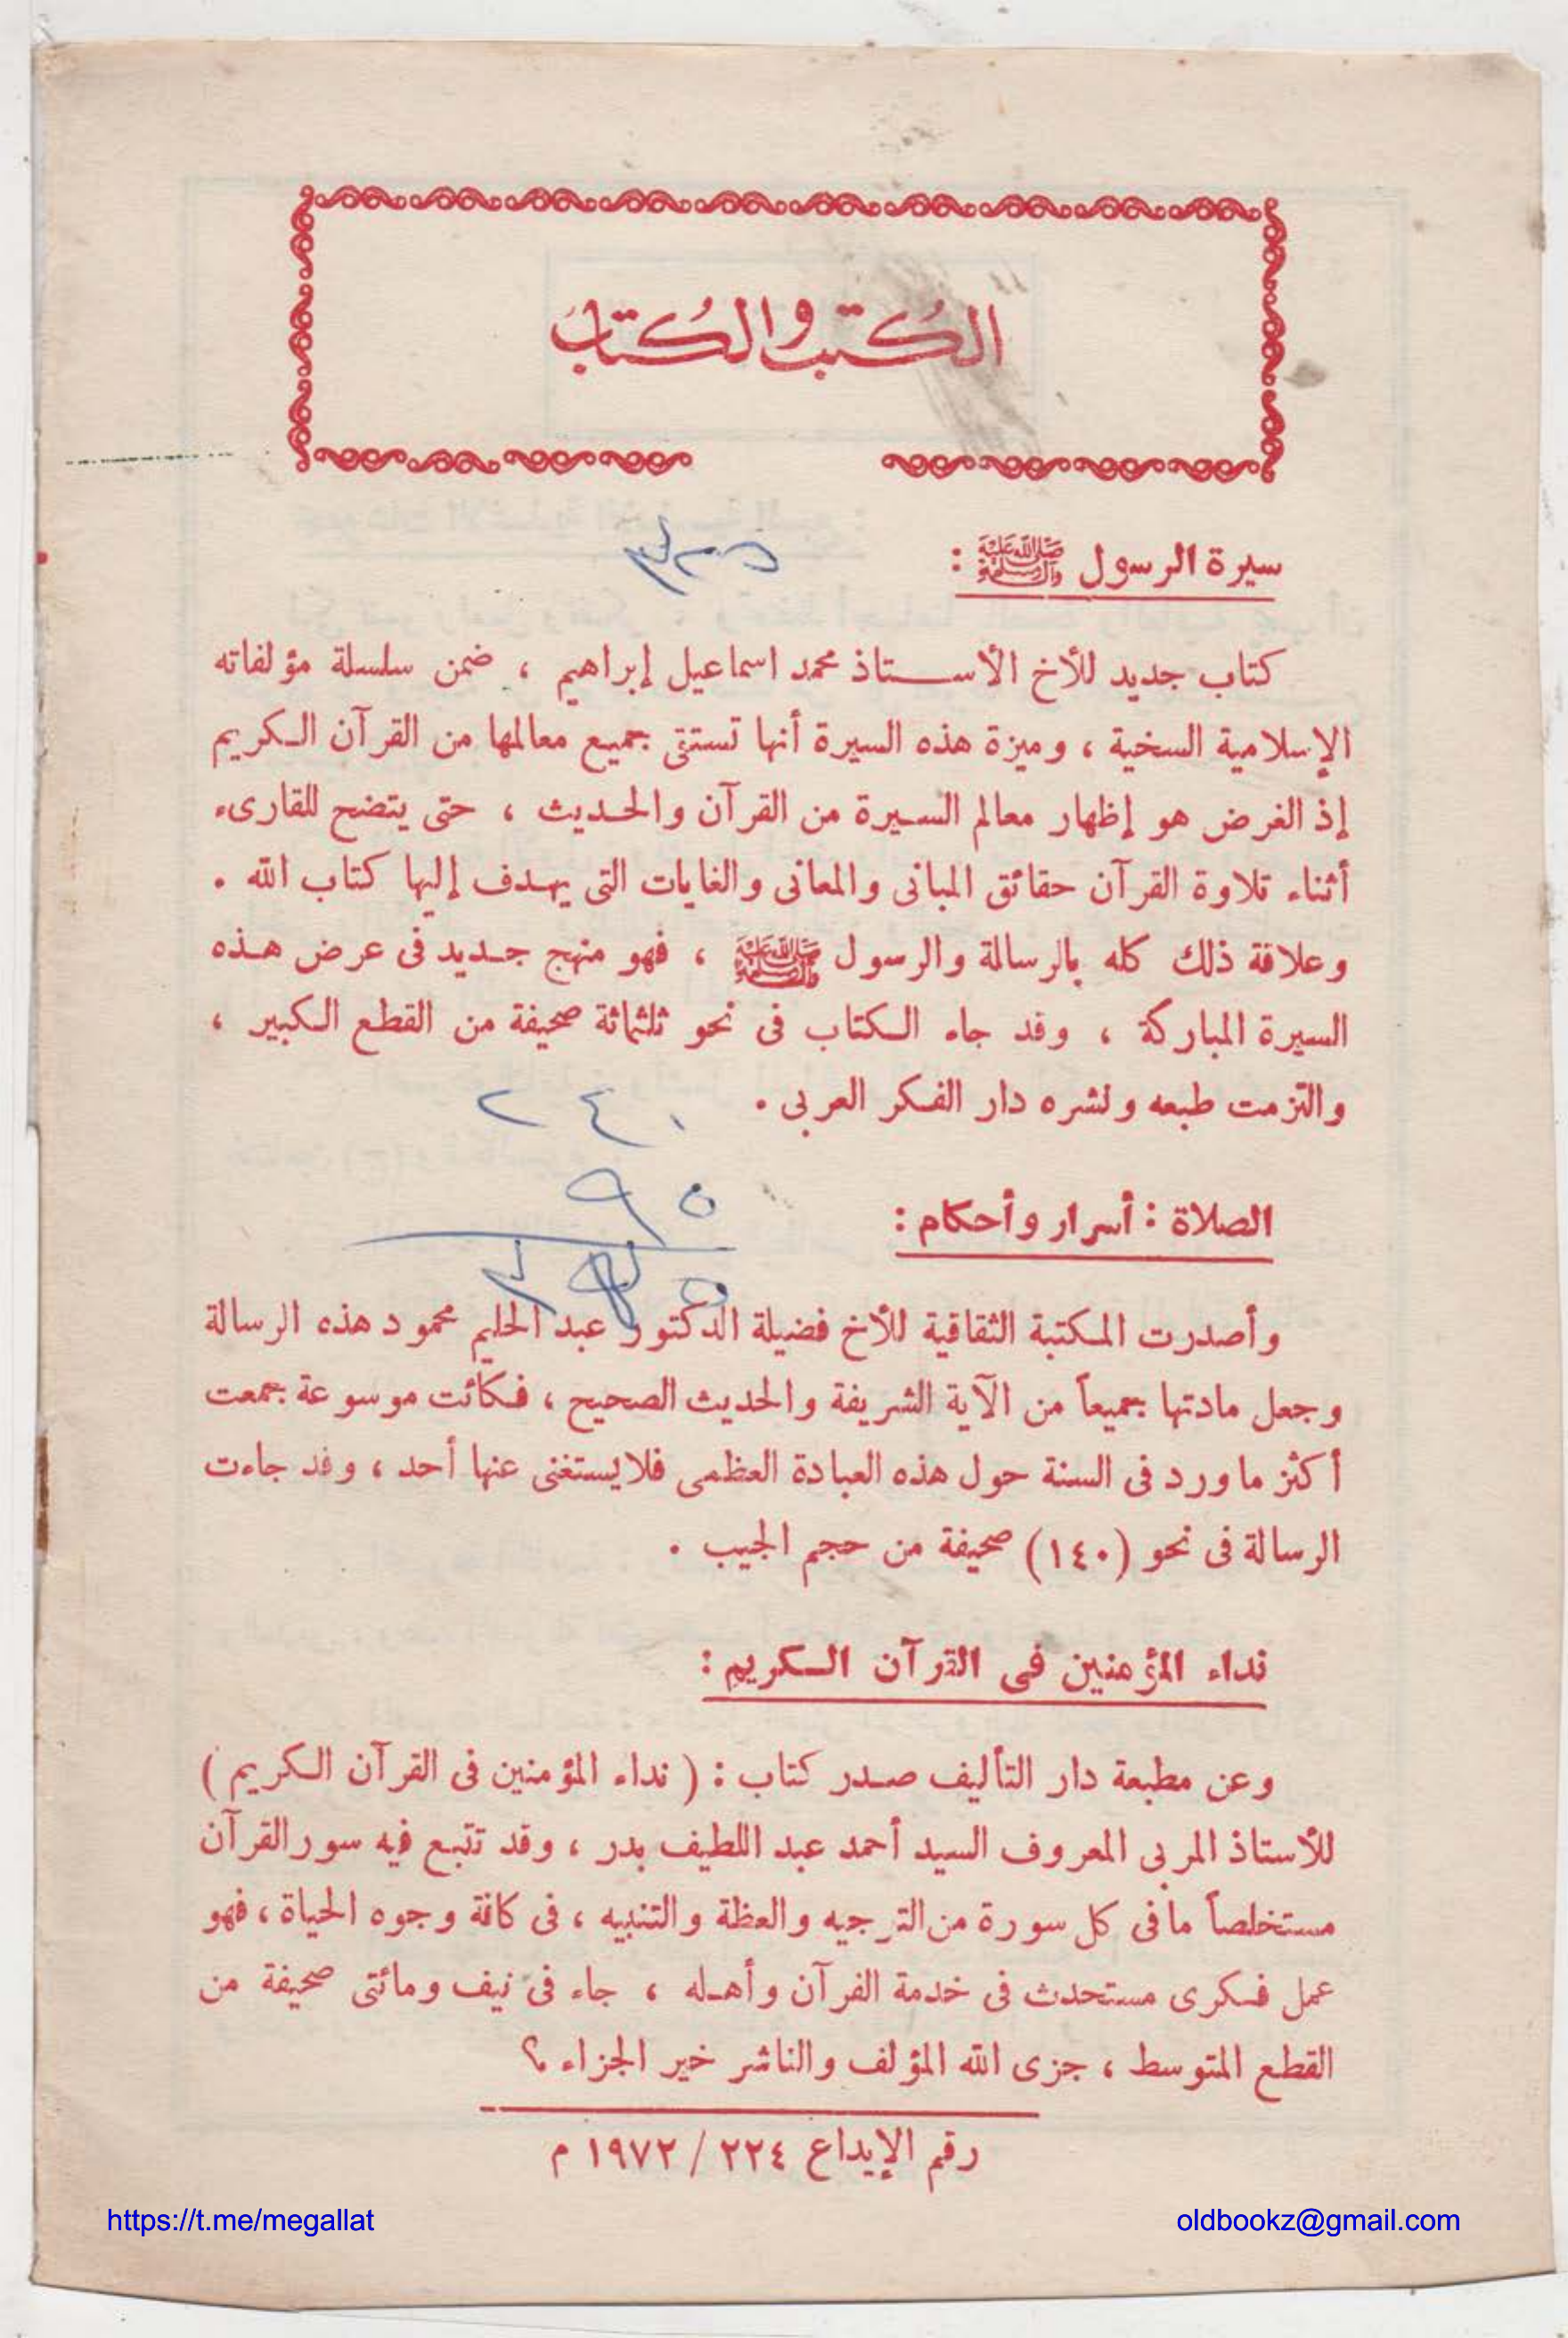 الكُتب والكُتاب
سيرة الرسول ﷺ :
كتاب جديد للأخ الأستاذ محمد اسماعيل إبراهيم ، ضمن سلسلة مؤلفاته
الإسلامية السخية ، وميزة هذه السيرة أنها تستقى جميع معالمها من القرآن الكريم
إذ الغرض هو إظهار معالم السيرة من القرآن والحديث ، حتى يتضح للقارىء
أثناء تلاوة القرآن حقائق المبانى والمعانى والغايات التى يهدف إليها كتاب الله .
وعلاقة ذلك كله بالرسالة والرسول ﷺ ، فهو منهج جديد فى عرض هذه
السيرة المباركة ، وقد جاء الكتاب فى نحو ثلثمائة صحيفة من القطع الكبير ،
والتزمت طبعه ونشره دار الفكر العربى .
٢٤٠
٩٥
الصلاة : أسرار وأحكام :
وأصدرت المكتبة الثقافية للأخ فضيلة الدكتور عبد الحليم محمود هذه الرسالة
وجعل مادتها جميعاً من الآية الشريفة والحديث الصحيح ، فكانت موسوعة جمعت
أكثر ما ورد فى السنة حول هذه العبادة العظمى فلا يستغنى عنها أحد ، وقد جاءت
الرسالة فى نحو (١٤٠) صحيفة من حجم الجيب .
نداء المؤمنين فى القرآن الكريم :
وعن مطبعة دار التأليف صدر كتاب : ( نداء المؤمنين فى القرآن الكريم )
للأستاذ المربى المعروف السيد أحمد عبد اللطيف بدر ، وقد تتبع فيه سور القرآن
مستخلصاً ما فى كل سورة من الترجيه والعظة والتنبيه ، فى كافة وجوه الحياة ، فهو
عمل فكرى مستحدث فى خدمة القرآن وأهله ، جاء فى نيف ومائتى صحيفة من
القطع المتوسط ، جزى الله المؤلف والناشر خير الجزاء ؟
رقم الإيداع ٢٢٤ / ١٩٧٢ م
https://t.me/megallat
oldbookz@gmail.com